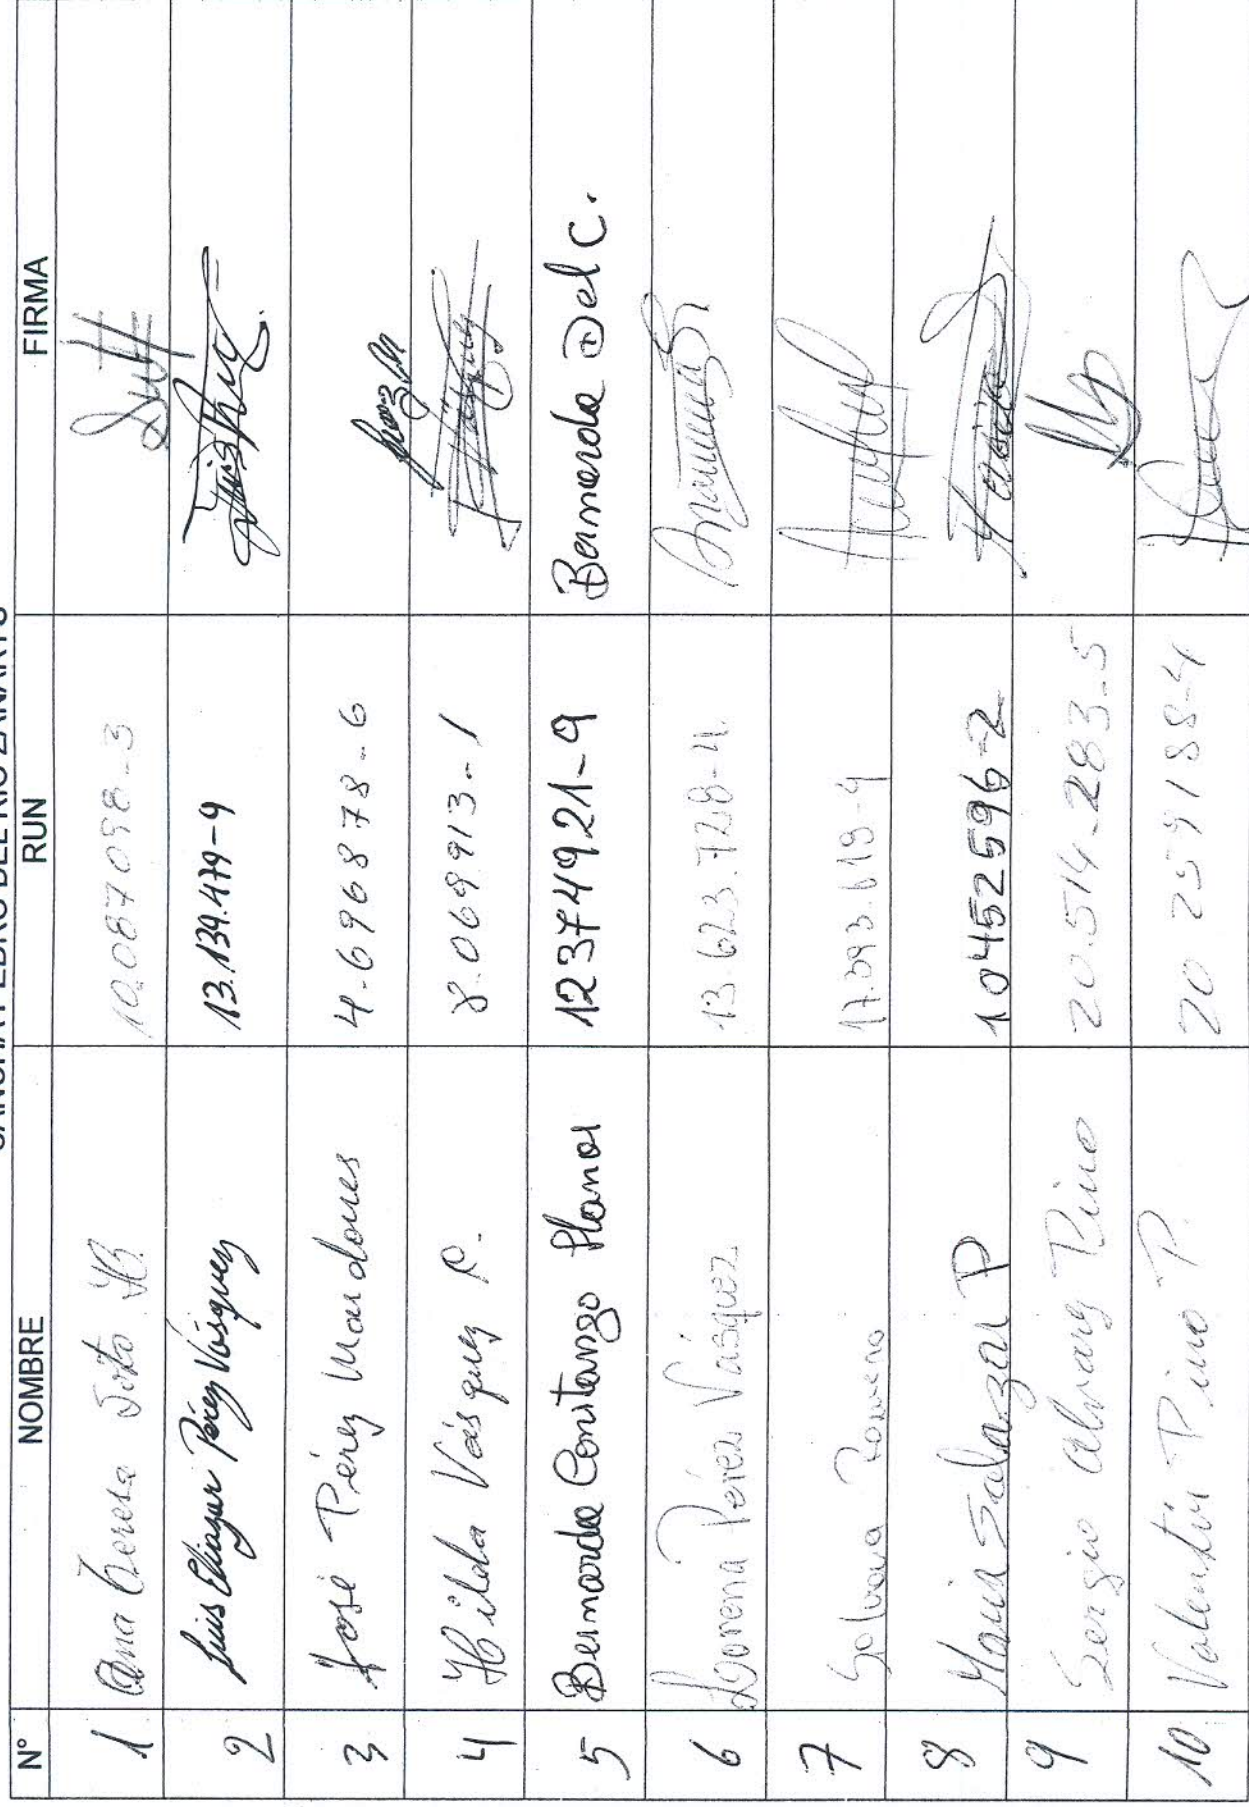 N° NOMBRE RUN FIRMA
1 Ana Teresa Soto 10.087098-3
2 Luis Eliazar Pérez Vásquez 13.139.479-9
3 José Pérez Mardones 4-696878-6
4 Hilda Vásquez P. 8.069913-1
5 Bernarda Constanzo Planor 123749 21-9 Bernarda Del C.
6 Lorena Pérez Vásquez 13.623.728-4
7 Romero 17.393.619-4
8 Maria Salazar P 10452596-2
9 Sergio Alvarez Pino 20.514-283-5
10 Valentín Pino P. 20 259188-4